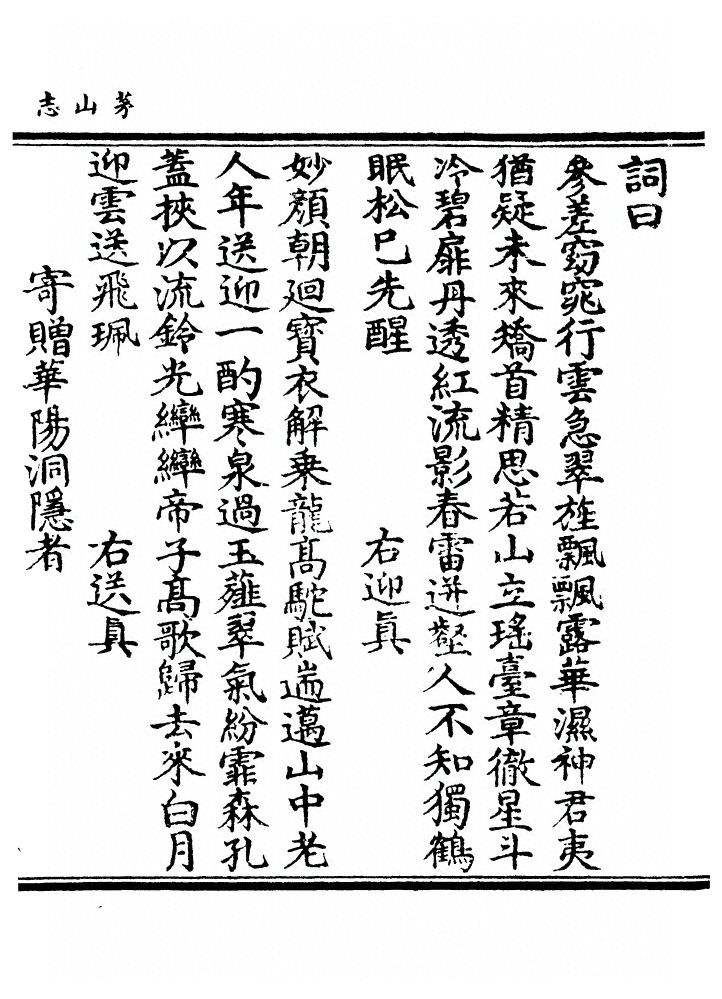 茅山志
詞曰
參差窈窕行雲急翠旌飄飄露華濕神君夷
猶疑未來矯首精思若山立瑤臺章徹星斗
冷碧扉丹透紅流影春雷迸壑人不知獨鶴
眠松已先醒　右迎眞
妙顏朝廻寶衣解乗龍髙駝賦遄邁山中老
人年送迎一酌寒泉過玉薤翠氣紛霏森孔
蓋挾以流鈴光繂繂帝子髙歌歸去來白月
迎雲送飛珮　右送眞
寄贈華陽洞隱者